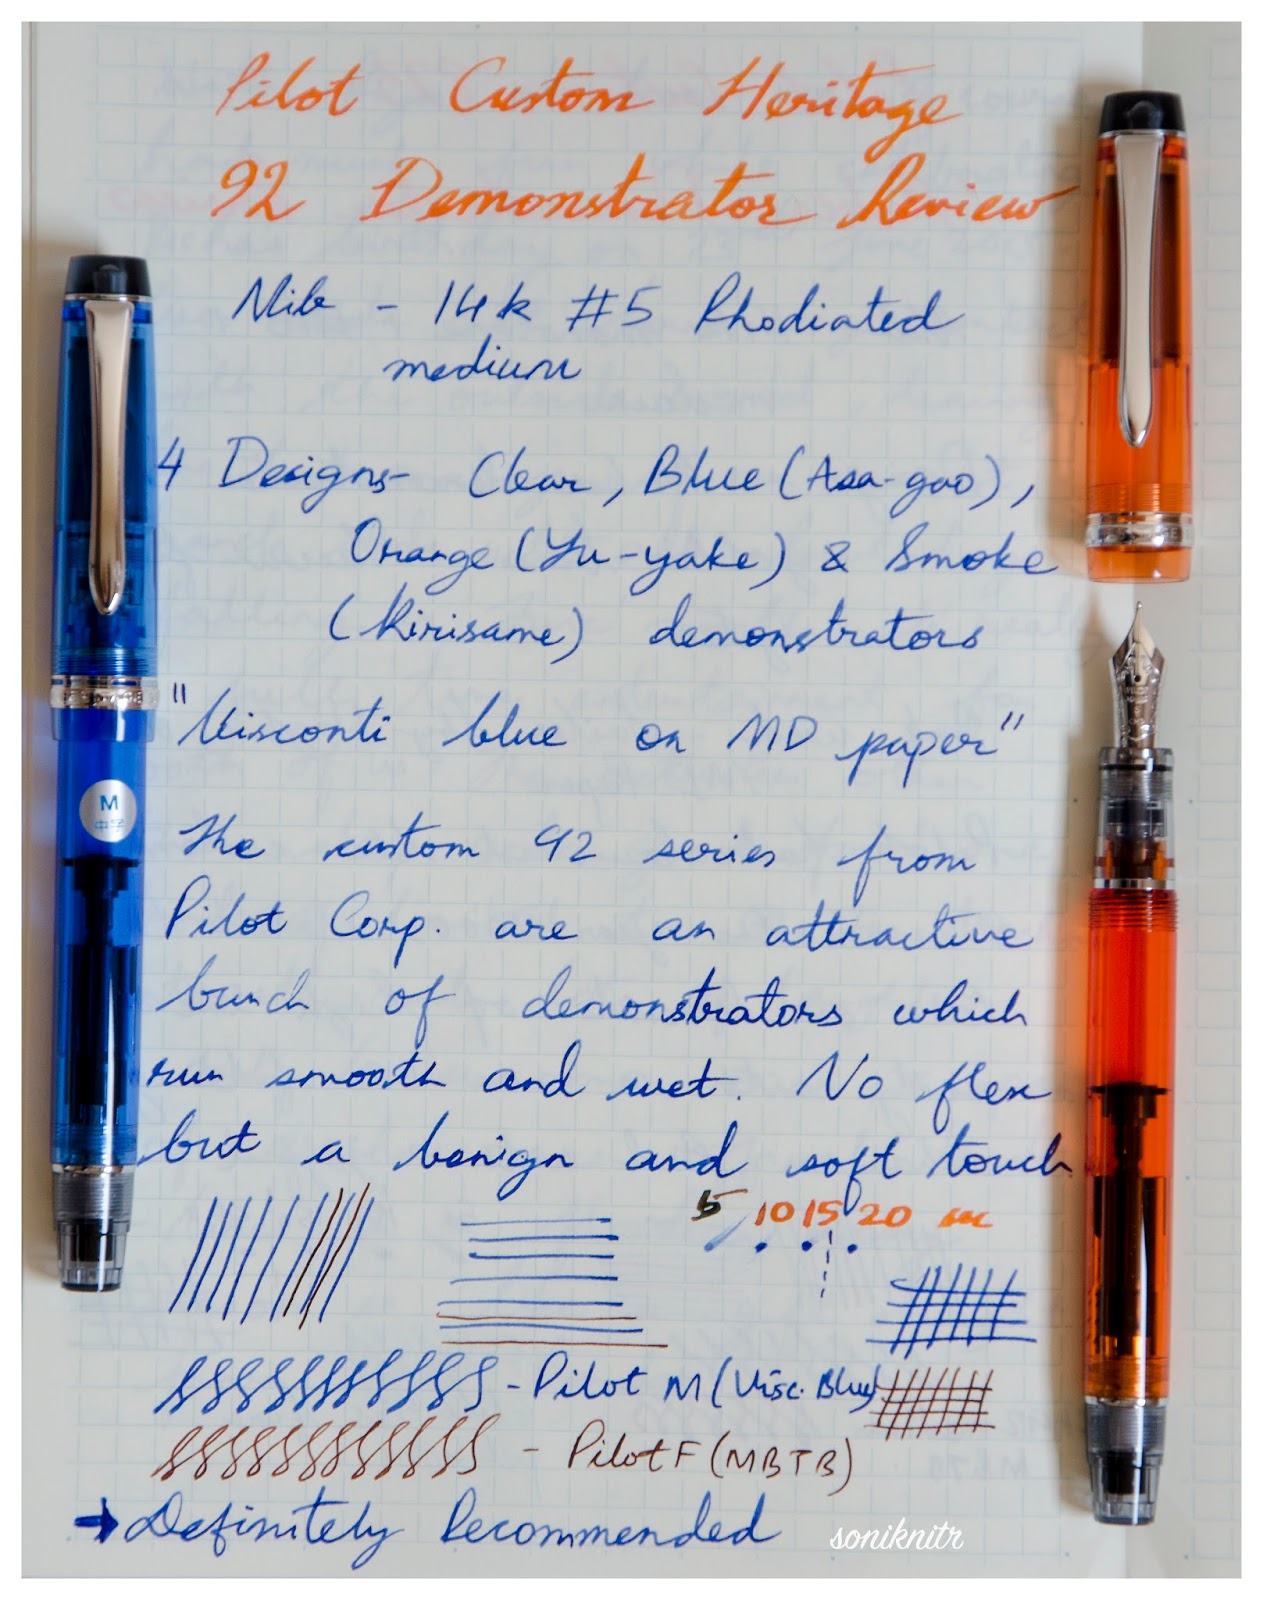 Pilot Custom Heritage
92 Demonstrator Review
Nib - 14k #5 Rhodiated
medium
4 Designs- Clear, Blue (Asa-gao),
Orange (Yu-yake) & Smoke
(Kirisame) demonstrators
"Visconti blue on MD paper"
M
中字
The custom 92 series from
Pilot Corp. are an attractive
bunch of demonstrators which
run smooth and wet. No flex
but a benign and soft touch
5 10 15 20 sec
- Pilot M (Visc. Blue)
- Pilot F (MBTB)
→ Definitely Recommended
soniknitr